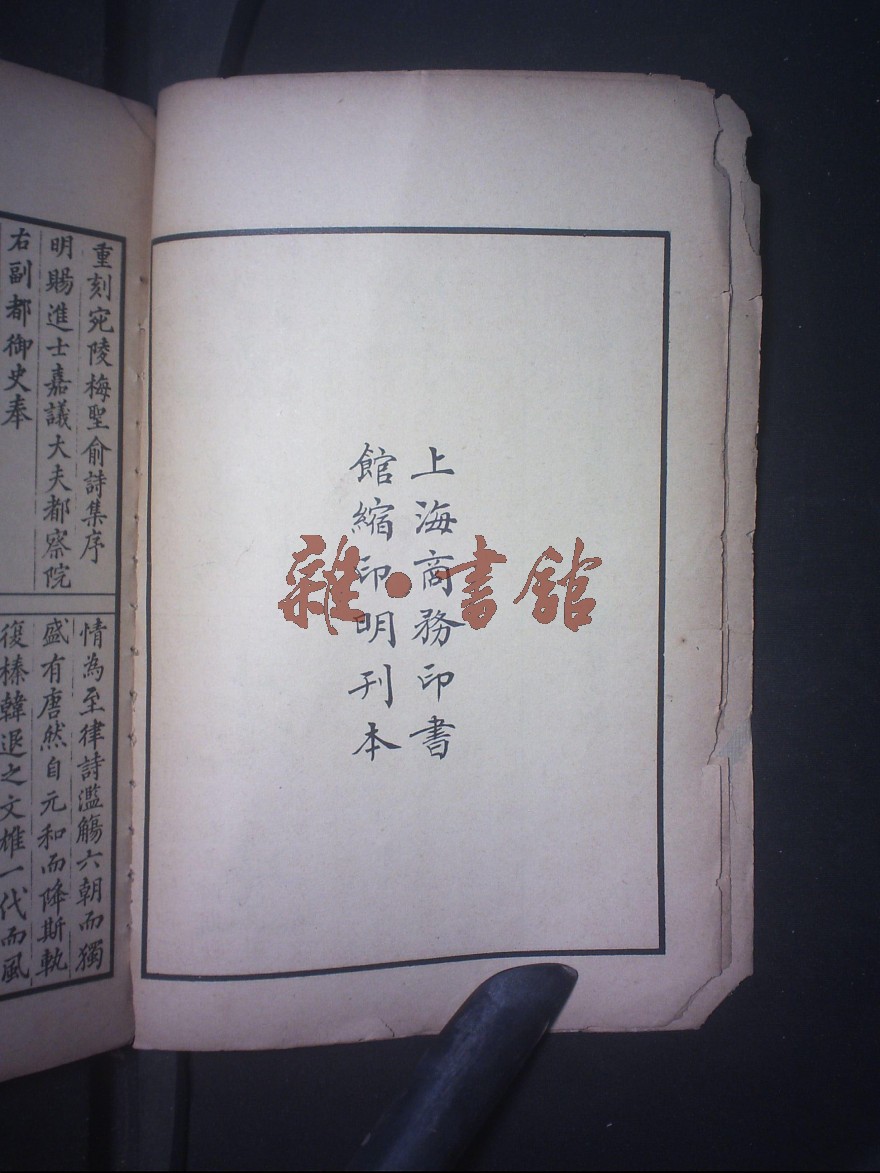 上海商務印書
館縮印明刊本
雜·書館
重刻宛陵梅聖俞詩集序
明賜進士嘉議大夫都察院
右副都御史奉
情為至律詩濫觴六朝而獨
盛有唐然自元和而降斯軌
復榛韓退之文雄一代而風